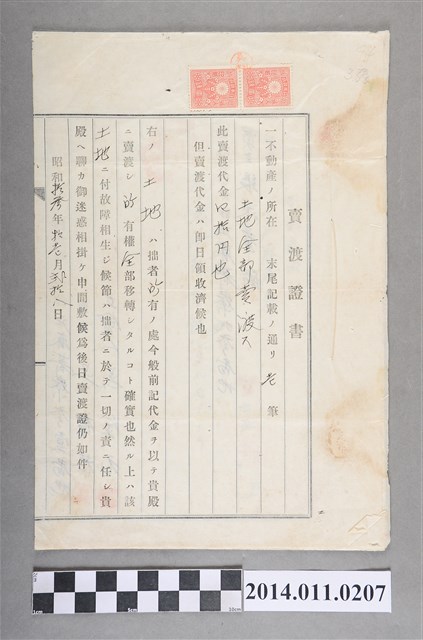 賣渡證書
一不動產ノ所在 末尾記載ノ通リ 壱 筆
土地全部賣渡ス
此賣渡代金四拾円也
但賣渡代金ハ即日領收濟候也
右ノ 土地 ハ拙者所有ノ處今般前記代金ヲ以テ貴殿
ニ賣渡シ所有權全部移轉シタルコト確實也然ル上ハ該
土地ニ付故障相生ジ候節ハ拙者ニ於テ一切ノ責ニ任シ貴
殿ヘ聊カ御迷惑相掛ケ申間敷候爲後日賣渡證仍如件
昭和拾參年拾壱月弍拾八日
1cm
5cm
10cm
2014.011.0207